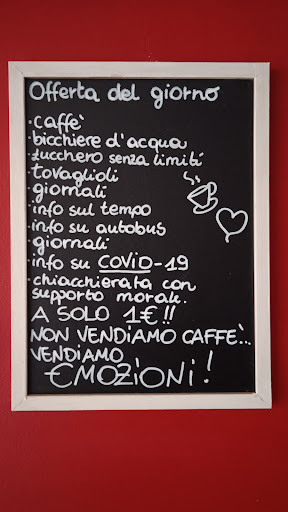 Offerta del giorno
·caffè
·bicchiere d'acqua
·zucchero senza limiti
·tovaglioli
·giornali
·info sul tempo
·info su autobus
·giornali
·info su COVID-19
·chiacchierata con
supporto morale.
A SOLO 1€!!
NON VENDIAMO CAFFÈ...
VENDIAMO
EMOZIONI!